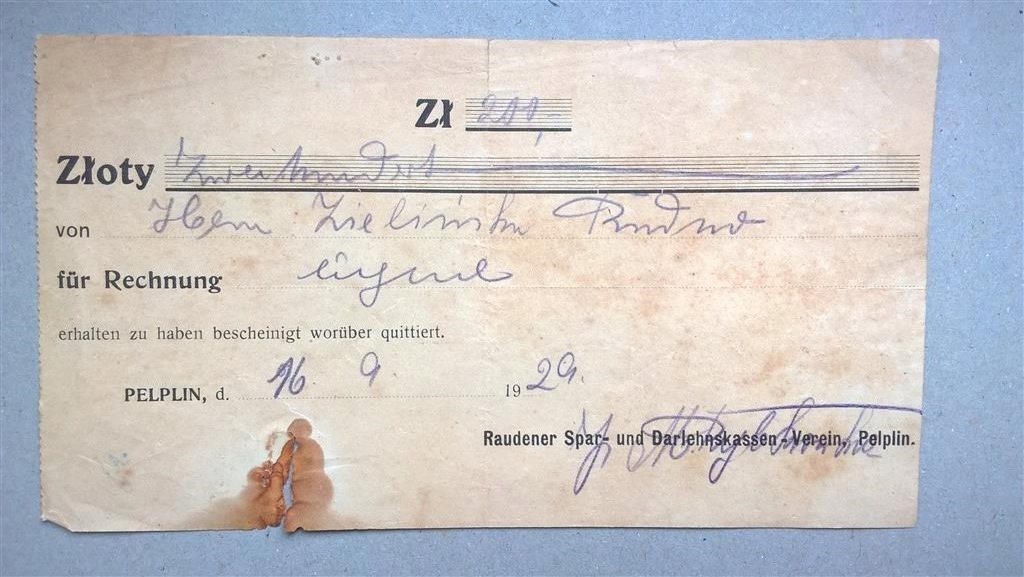 Zł 200,-
Złoty Zweihundert
von Herrn Zielińsky Rudno
für Rechnung eigene
erhalten zu haben bescheinigt worüber quittiert.
PELPLIN, d. 16. 9. 1929.
Raudener Spar- und Darlehnskassen-Verein, Pelplin.